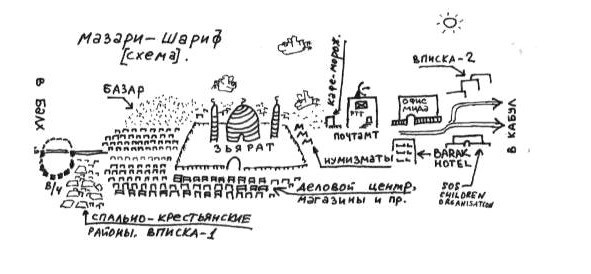 Мазари-Шариф
[схема].
В БАЛХ
БАЗАР
КАФЕ-МОРОЖ.
ВПИСКА-2
ОФИС
МИДА
РТТ
ПОЧТАМТ
ЗЬЯРАТ
НУМИЗМАТЫ
BARAK
HOTEL
В КАБУЛ
В/Ч
ДЕЛОВОЙ ЦЕНТР,
МАГАЗИНЫ И ПР.
SOS
CHILDREN
ORGANISATION
СПАЛЬНО-КРЕСТЬЯНСКИЕ
РАЙОНЫ. ВПИСКА-1